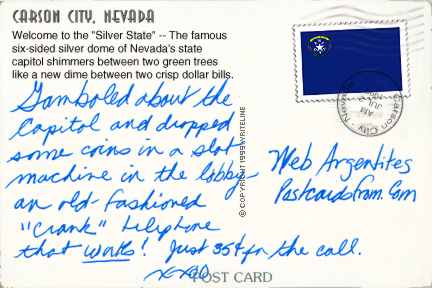 CARSON CITY, NEVADA
Welcome to the "Silver State" -- The famous
six-sided silver dome of Nevada's state
capitol shimmers between two green trees
like a new dime between two crisp dollar bills.
Gamboled about the
Capitol and dropped
some coins in a slot
machine in the lobby-
an old-fashioned
"crank" telephone
that works! Just 35¢ for the call.
xxoo
© COPYRIGHT 1995 WRITELINE
Web Argentites
Postcardsfrom.Com
Carson City - Nevada
AM
JUL 2
POST CARD